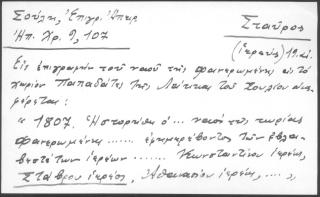 Σούλη, Ἐπιγρ. Ἠπείρ.
Σταῦρος
Ἠπ. Χρ. 9, 107
(ἱερεύς) 19 αἰ.
Εἰς ἐπιγραφὴν τοῦ ναοῦ τῆς Φανερωμένης εἰς τὸ
χωρίον Παπαδάτες τῆς Λάκκας τοῦ Σουλίου ἀνα-
φέρεται:
« 1807. Ἡστορήθη ὁ ... ναὸς τῆς κυρίας
Φανερωμένης ...... ἐφημερεύοντος τῶν εὐλα-
βεστάτων ἱερέων ...... Κωνσταντίνου ἱερέως,
Σταύρου ἱερέος, Ἀθανασίου ἱερέως, .... »,